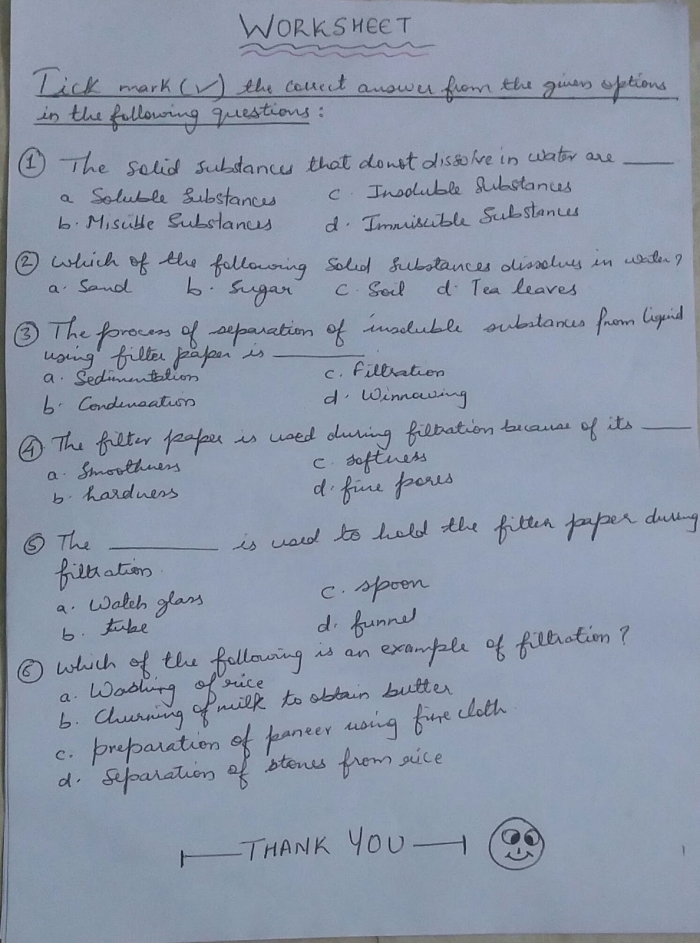 WORKSHEET
Tick mark (✓) the correct answer from the given options
in the following questions :
① The solid substances that donot dissolve in water are ____
a Soluble Substances c. Insoluble Substances
b. Miscible Substances d. Immiscible Substances
② Which of the following Solid Substances dissolves in water?
a. Sand b. Sugar c. Soil d. Tea leaves
③ The process of separation of insoluble substances from liquid
using filter paper is ____.
a. Sedimentation c. Filtration
b. Condensation d. Winnowing
④ The filter paper is used during filtration because of its ____
a. Smoothness c. softness
b. hardness d. fine pores
⑤ The ____ is used to hold the filter paper during
filtration.
a. Watch glass c. spoon
b. tube d. funnel
⑥ Which of the following is an example of filtration ?
a. Washing of rice
b. Churning of milk to obtain butter
c. preparation of paneer using fine cloth.
d. Separation of stones from rice
THANK YOU